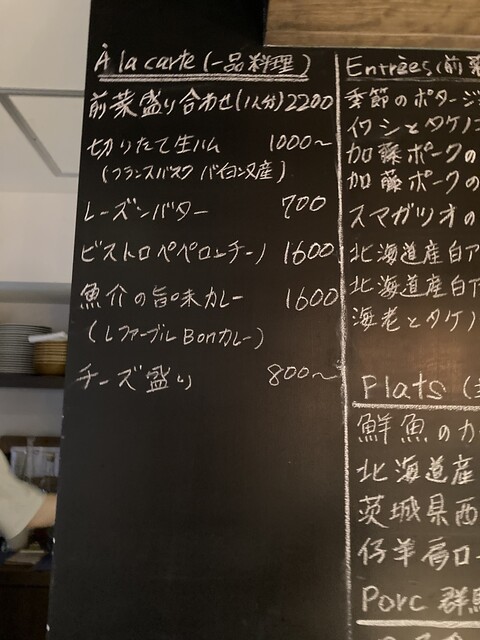 À la carte (一品料理)
前菜盛り合わせ(1人分) 2200
切りたて生ハム 1000〜
(フランスバスク バイヨンヌ産)
レーズンバター 700
ビストロペペロンチーノ 1600
魚介の旨味カレー 1600
(レファーブル Bonカレー)
チーズ盛り 800〜
Entrées (前菜
季節のポタージ
イワシとタケノコ
加藤ポークの
加藤ポークの
スマガツオの
北海道産白ア
北海道産白ア
海老とタケノ
Plats (
鮮魚のカ
北海道産
茨城県西
仔羊肩ロー
Porc 群馬